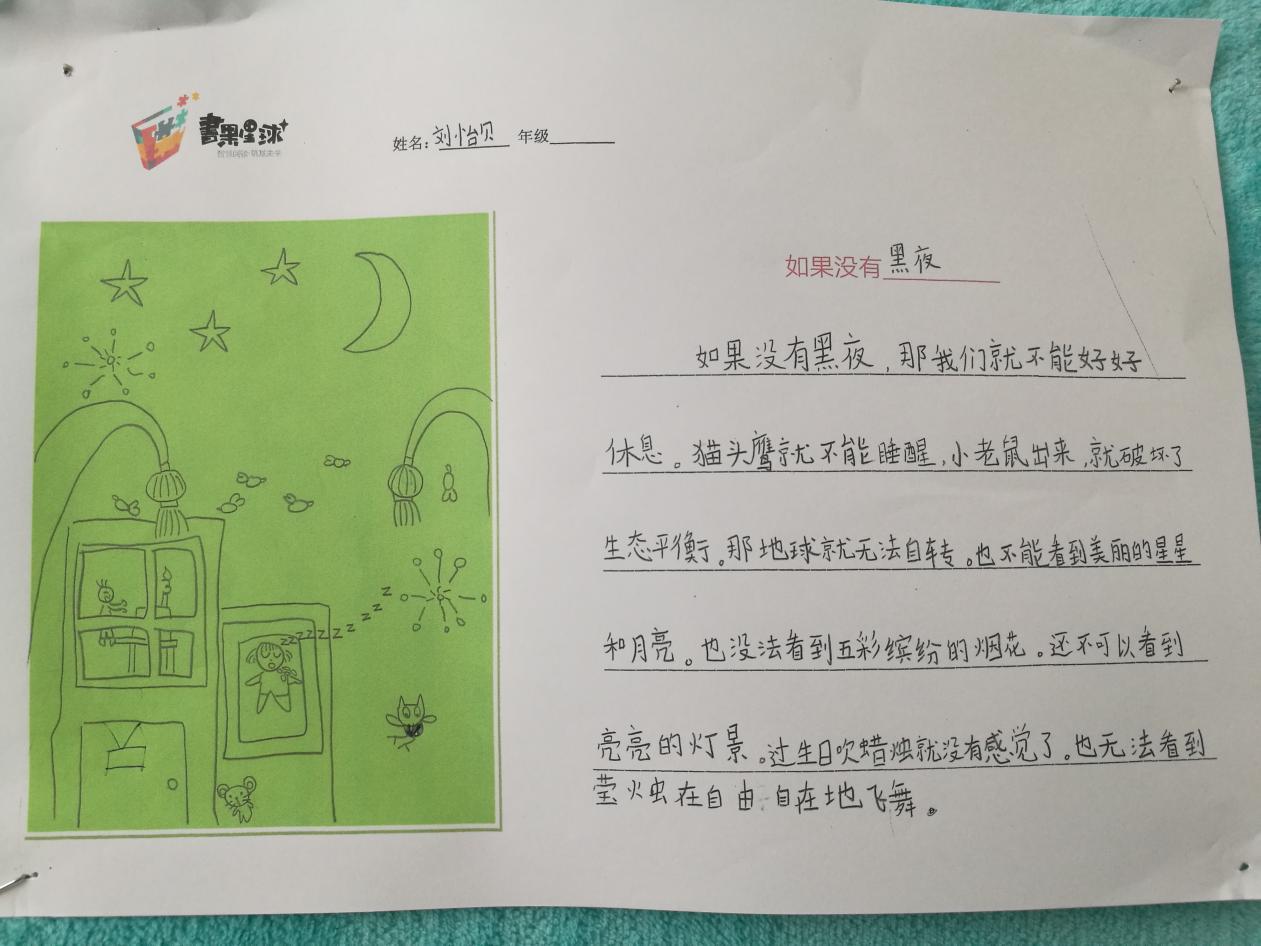 書果星球
姓名：刘怡贝 年级
如果没有黑夜
如果没有黑夜，那我们就不能好好
休息。猫头鹰就不能睡醒，小老鼠出来，就破坏了
生态平衡。那地球就无法自转。也不能看到美丽的星星
和月亮。也没法看到五彩缤纷的烟花。还不可以看到
亮亮的灯景。过生日吹蜡烛就没有感觉了。也无法看到
萤火虫在自由自在地飞舞。
zzzzzzzzzz